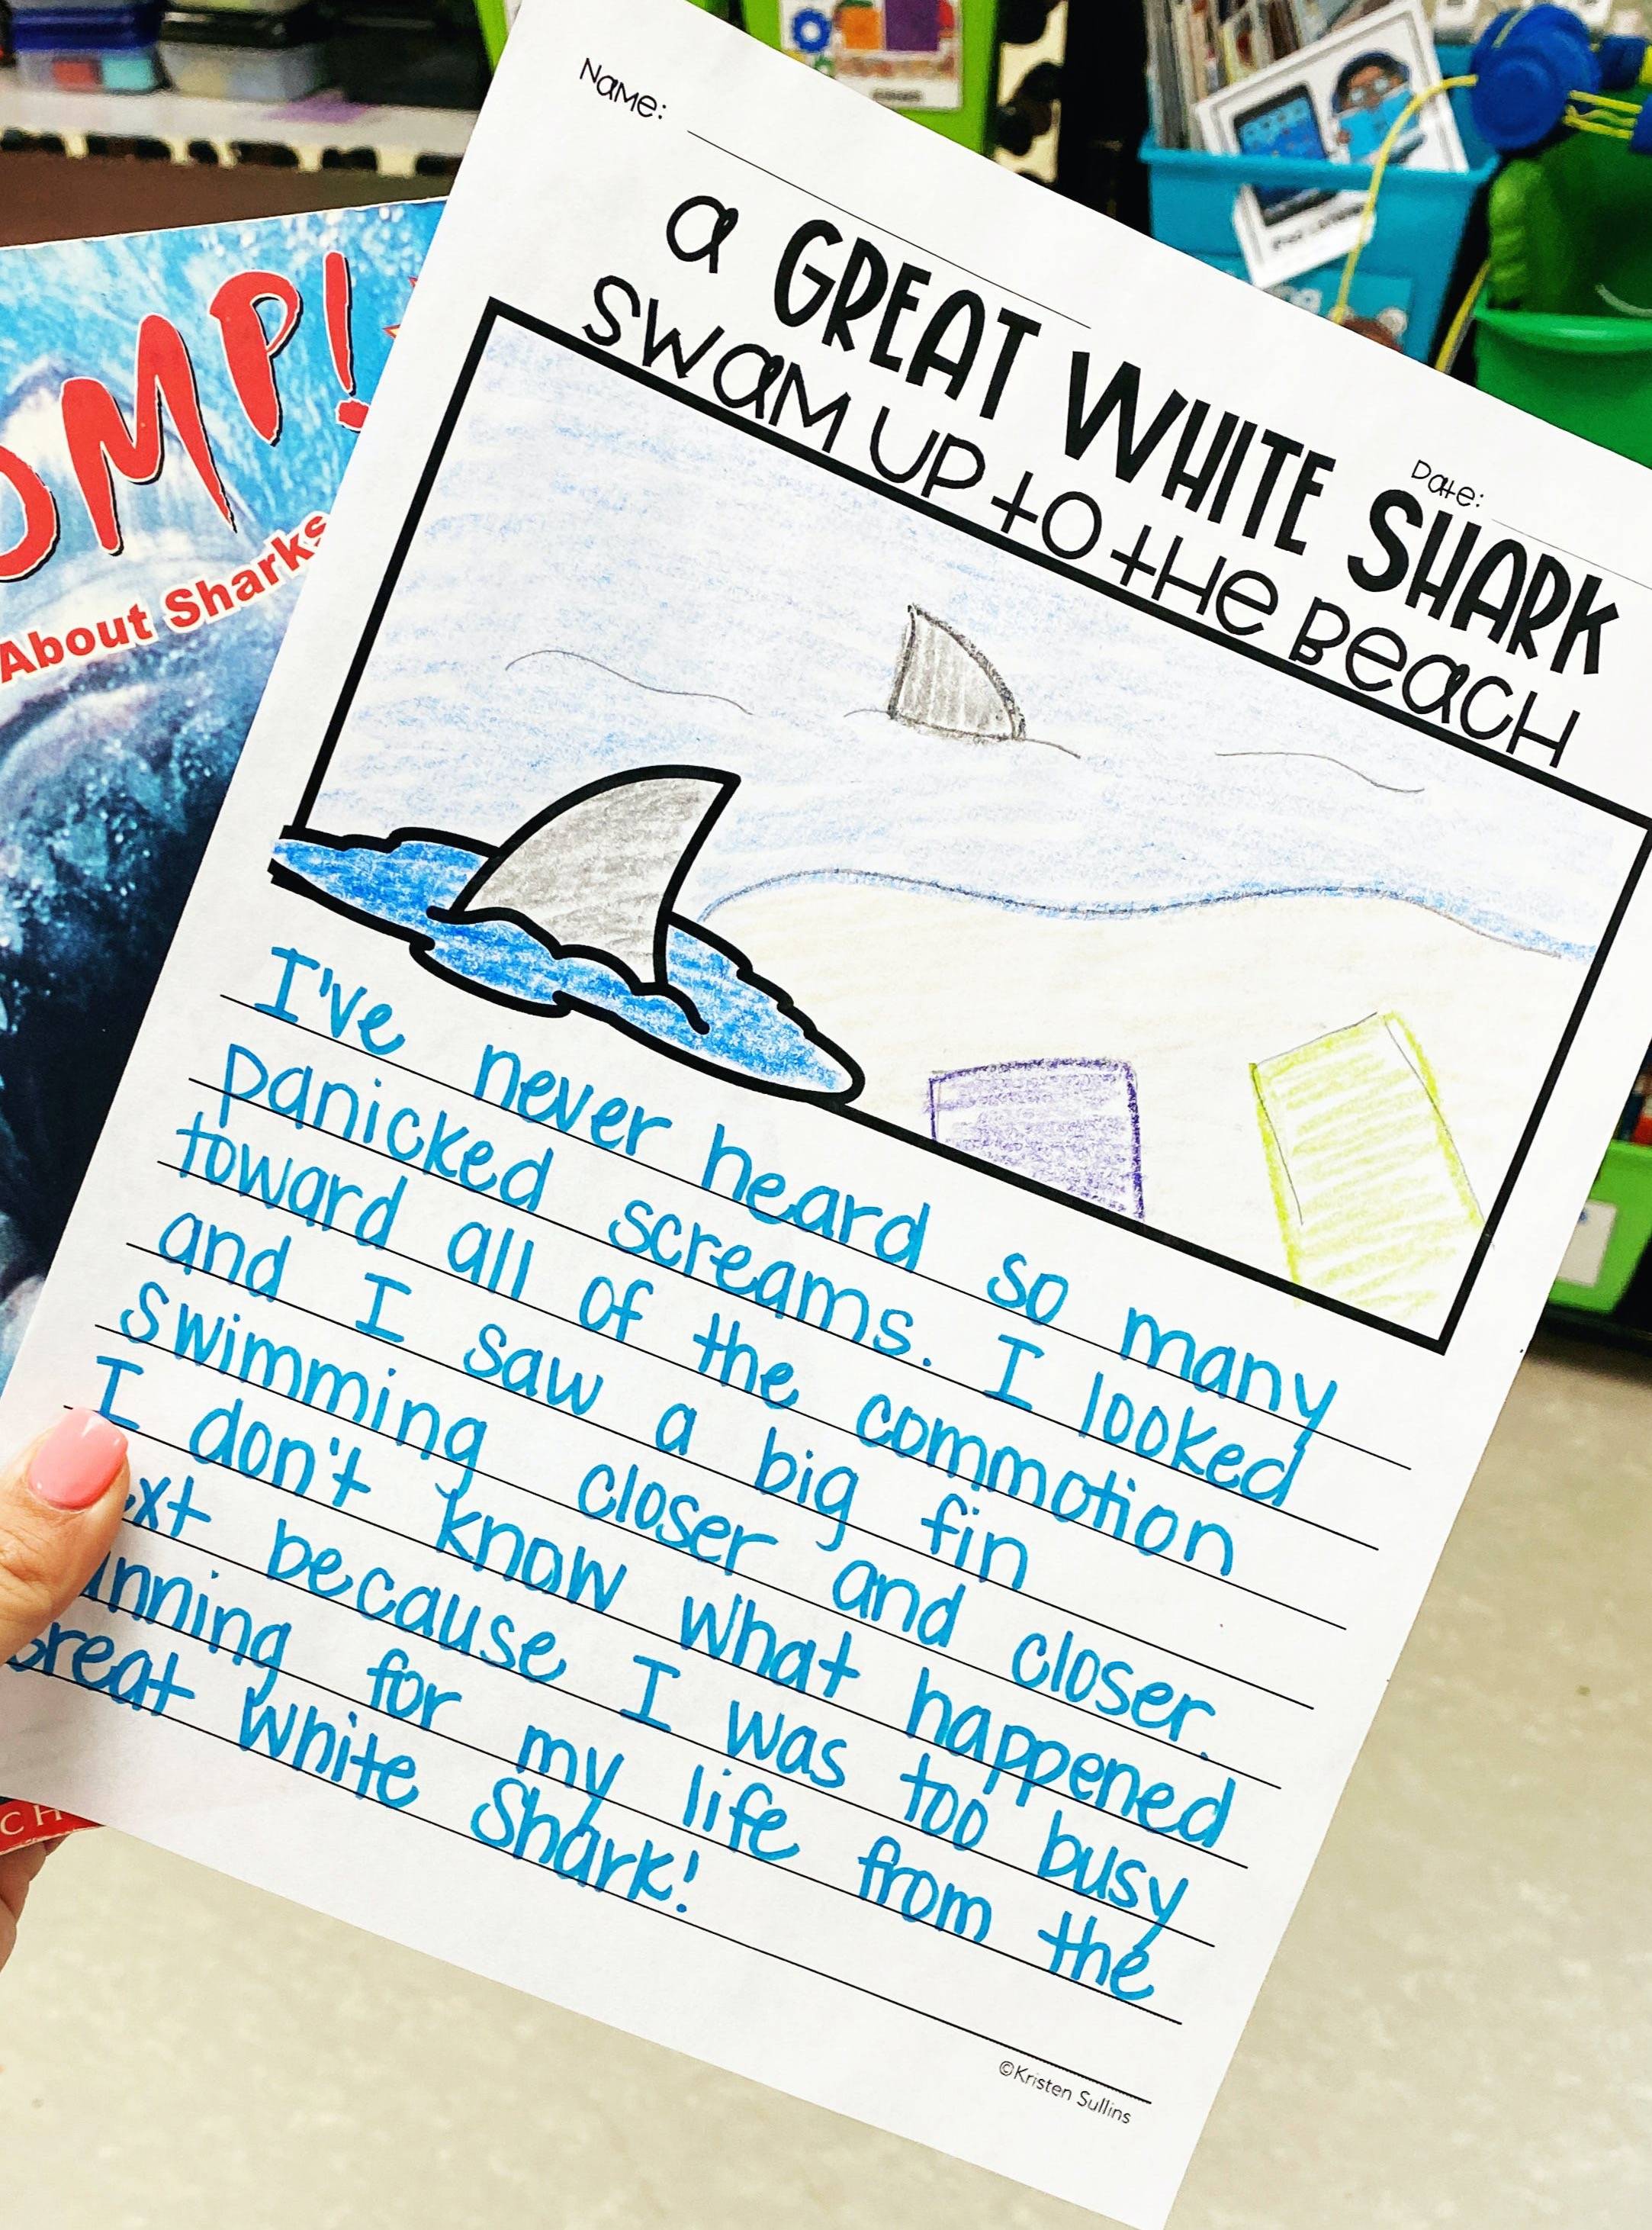 Name:
Date:
a GREAT WHITE SHARK
SWaM UP tO tHe BeacH
OMP!
About Sharks
I've never heard so many
panicked screams. I looked
toward all of the commotion
and I saw a big fin
swimming closer and closer.
I don't know what happened
ext because I was too busy
unning for my life from the
Great White Shark!
©Kristen Sullins
CH